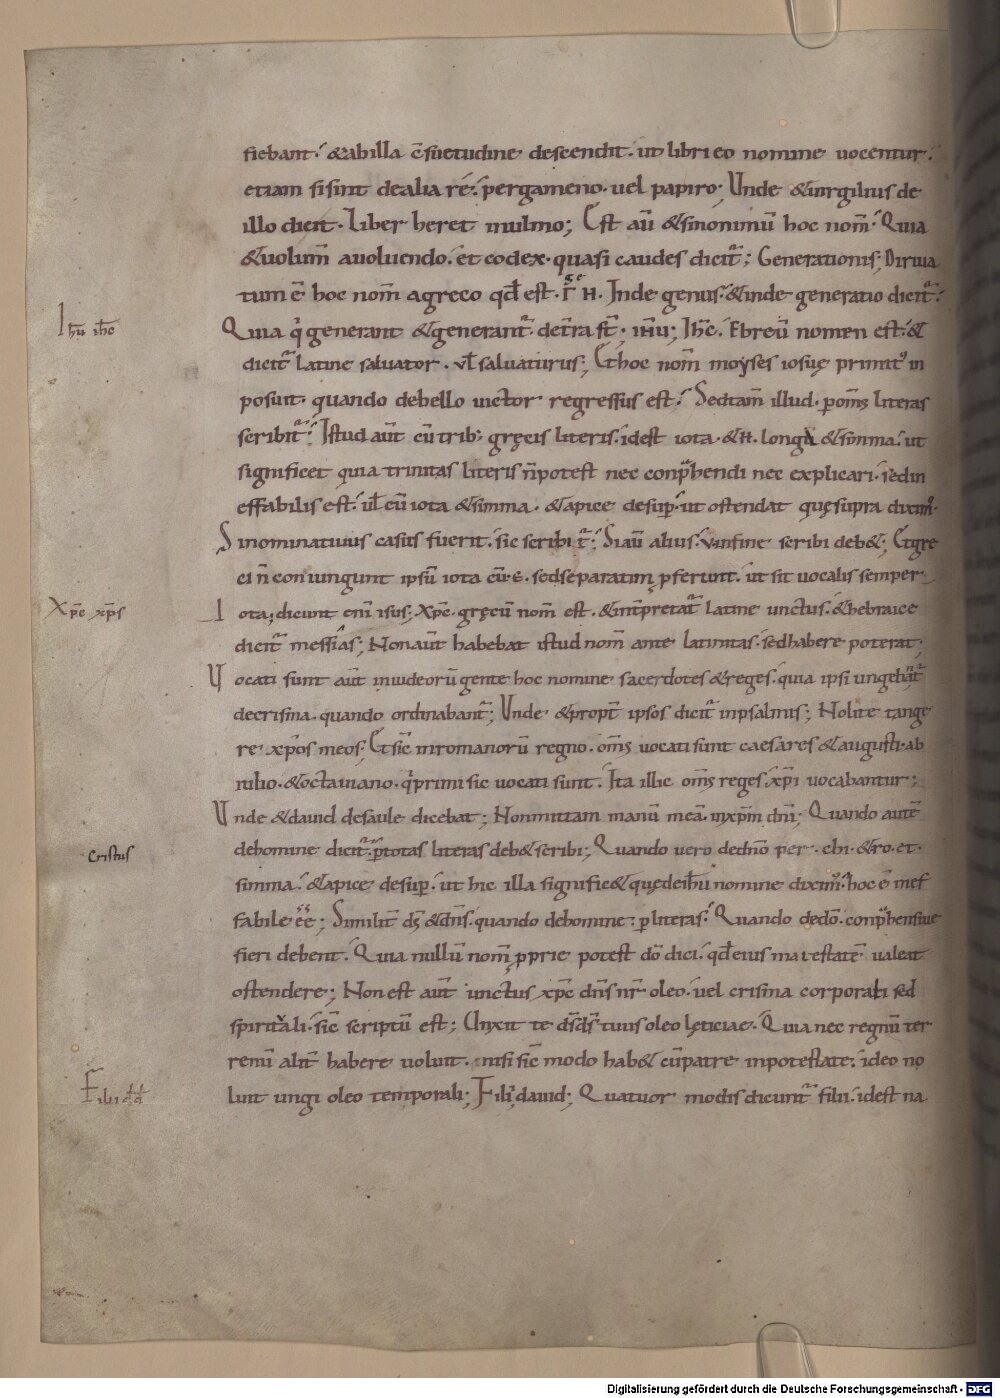 fiebant. &abilla c̄suetudine descendit. ut libri eo nomine uocentur.
etiam si sint dealia rē. pergameno. uel papiro. Unde &uirgilius de
illo dicit. Liber heret in ulmo; Est aū &sinonimū hoc nom̄. Quia
&uolum̄ auoluendo. et codex. quasi caudex dicit; Generationis; Diriua
tum ē hoc nom̄ agreco qd̄ est. Inde genus. &inde generatio dicit.
Ihū ihc
Quia q generant &generant. IHU; Ihc. Ebreū nomen est. &
dicit latine saluator. vl saluaturus; Et hoc nom̄ moyses iosuę primit in
posuit. quando debello uictor regressus est. Sed tam̄ illud. p om̄s literas
scribit. Istud aut̄ cū trib; gręcis literis. idest iota. &H. longa &simma. ut
significet quia trinitas literis n̄ potest nec conphendi nec explicari. sed in
effabilis est. ul cū iota &simma. &apice desup. ut ostendat quę supra dixim.
Si nominatiuus casus fuerit. sic scribit; Si aū alius. v. infine scribi deb&; Et gre
ci n̄ coniungunt ipsū iota cū. e. sed separatim pferunt. ut sit uocalis semper
Xpc xps
Iota; dicunt enī isus; Xpc. gręcū nom̄ est. &intpretat latine unctus. &hebraice
dicit messias; Non aut̄ habebat istud nom̄ ante latinitas. sed habere poterat;
Vocati sunt aut̄ in iudeorū gente hoc nomine sacerdotes &reges. quia ipsi ungebāt
decrisma. quando ordinabant; Unde &propt̄ ipsos dicit inpsalmis; Nolite tange
re xpos meos; Et sic̄ inromanorū regno. om̄s uocati sunt caesares &augusti. ab
iulio. &octauiano. q primi sic uocati sunt. Ita illic om̄s reges xpi uocabantur;
Unde &dauid desaule dicebat; Non mittam manū meā. in xpm dnī; Quando autē
Cristus
dehomine dicit. p totas literas deb& scribi; Quando uero dedn̄o per. chi. &ro. et.
simma. &apice desup. ut hic illa signific& quę deihū nomine dixim. hoc ē inef
fabile; Similit̄ ds̄ &dn̄s. quando dehomine. p literas. Quando dedō. conphensiue
fieri debent. Quia nullū nom̄ pprie potest dō dici. qd̄ eius maiestatē ualeat
ostendere; Non est aut̄ unctus xpc dn̄s nr̄ oleo. uel crisma corporali sed
spiritali. sic̄ scriptū est; Unxit te ds̄ ds̄ tuus oleo lęticiae. Quia nec regnū ter
renū alit̄ habere uoluit. nisi sic̄ modo hab& cū patre inpotestate. ideo no
Filii dd
luit ungi oleo temporali; Filii dauid; Quatuor modis dicunt filii. idest na
Digitalisierung gefördert durch die Deutsche Forschungsgemeinschaft - DFG